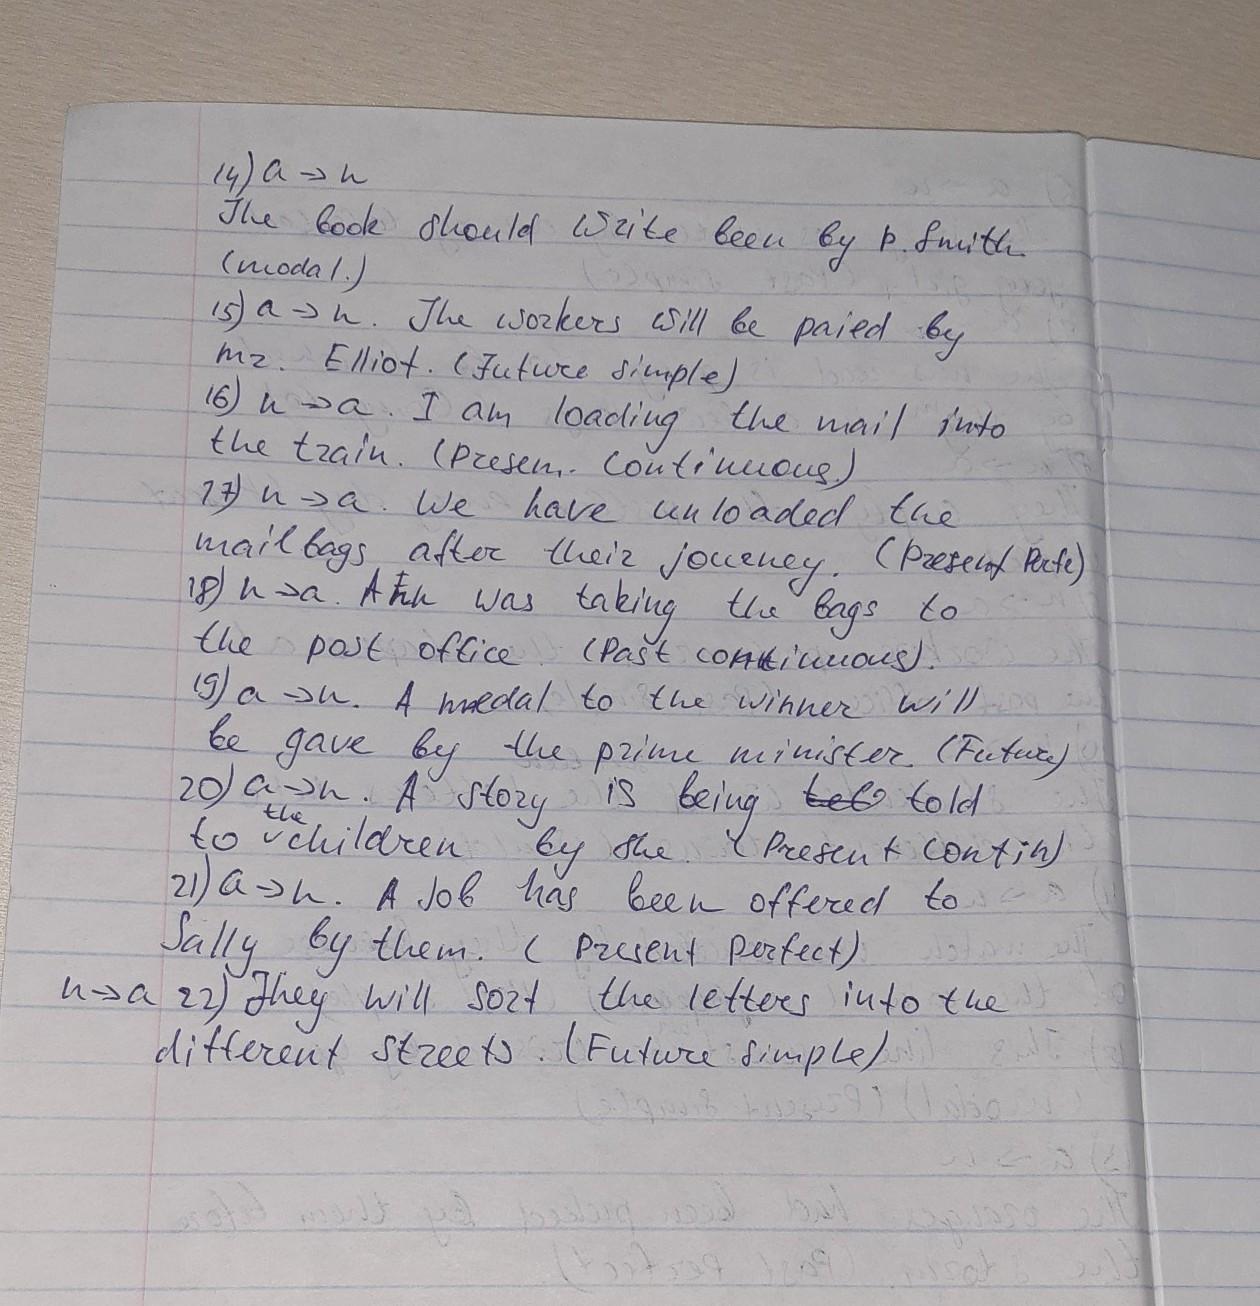 14) a → n
The book should write been by P. Smith.
(modal.)
15) a → n. The workers will be paied by
mr. Elliot. (Future simple)
16) n → a. I am loading the mail into
the train. (Presen. Continuous)
17) n → a. We have unloaded the
mailbags after their journey. (Present Perfe)
18) n → a. Ann was taking the bags to
the post office. (Past continuous).
19) a → n. A medal to the winner will
be gave by the prime minister. (Future)
20) a → n. A story is being told
to the children by she. (Present contin)
21) a → n. A Job has been offered to
Sally by them. (Present perfect)
n → a 22) They will sort the letters into the
different streets. (Future simple)